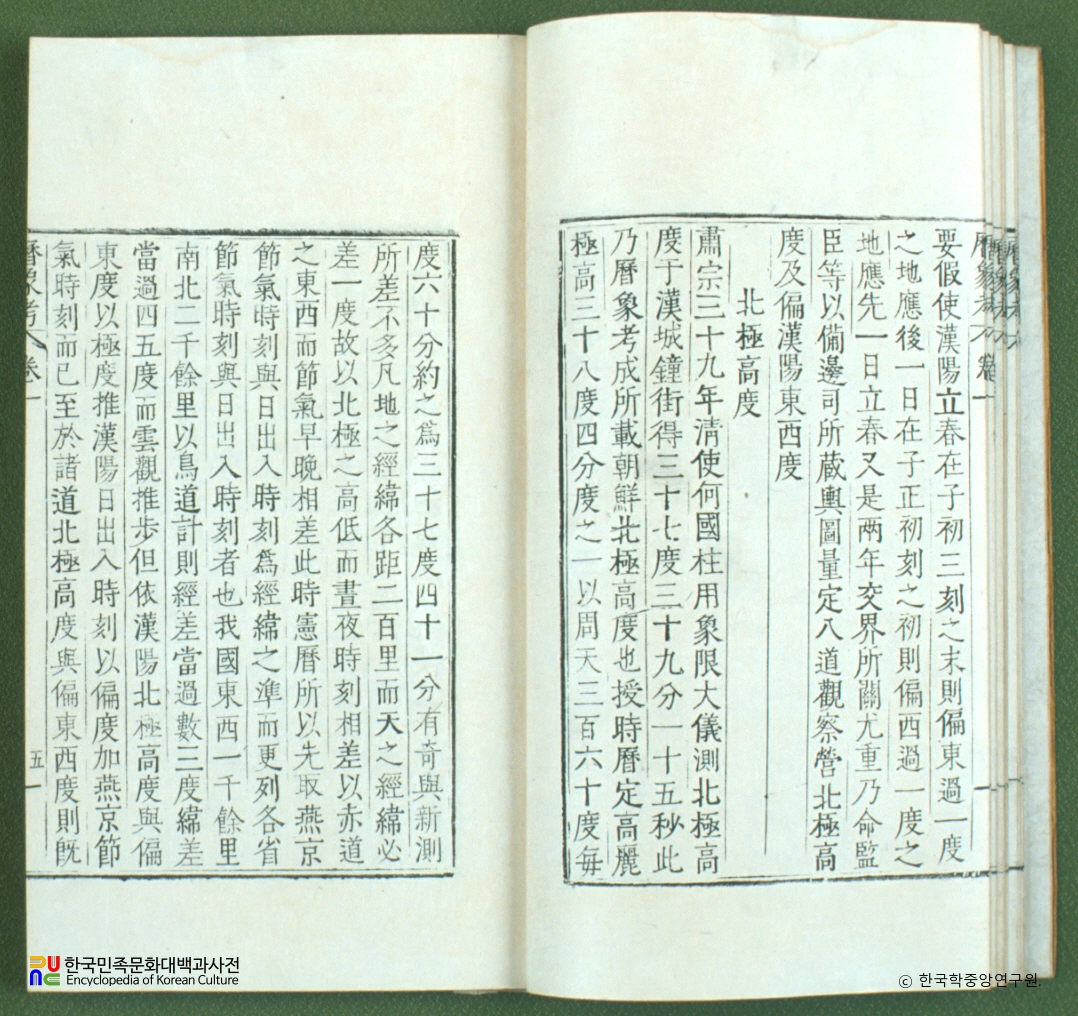 要假使漢陽立春在子初三刻之末則偏東過一度
之地應後一日在子正初刻之初則偏西過一度之
地應先一日立春又是兩年交界所關尤重乃命監
臣等以備邊司所藏輿圖量定八道觀察營北極高
度及偏漢陽東西度
北極高度
肅宗三十九年清使何國柱用象限大儀測北極高
度于漢城鐘街得三十七度三十九分一十五秒此
乃曆象考成所載朝鮮北極高度也授時曆定高麗
極高三十八度四分度之一以周天三百六十度每
度六十分約之爲三十七度四十一分有奇與新測
所差不多凡地之經緯各距二百里而天之經緯必
差一度故以北極之高低而晝夜時刻相差以赤道
之東西而節氣早晚相差此時憲曆所以先取燕京
節氣時刻與日出入時刻爲經緯之準而更列各省
節氣時刻與日出入時刻者也我國東西一千餘里
南北二千餘里以鳥道計則經差當過數三度緯差
當過四五度而雲觀推步但依漢陽北極高度與偏
東度以極度推漢陽日出入時刻以偏度加燕京節
氣時刻而已至於諸道北極高度與偏東西度則旣
曆象考 卷一
五
한국민족문화대백과사전
Encyclopedia of Korean Culture
© 한국학중앙연구원.